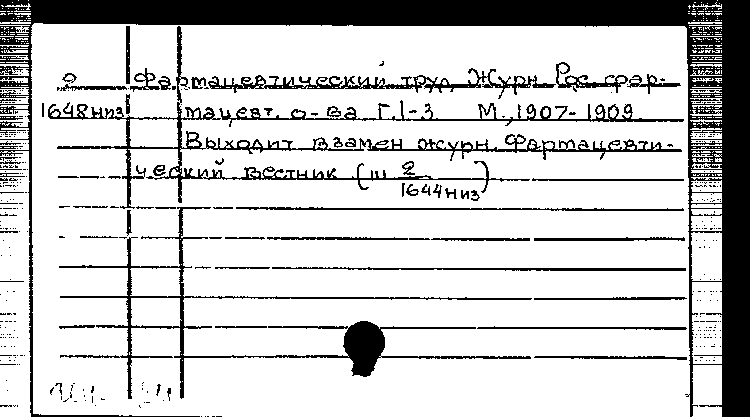 О Фармацевтический труд. Журн. Рос. фар-
1648 низ мацевт. о-ва Г. 1-3 М., 1907-1909
Выходит взамен журн. Фармацевти-
ческий вестник (ш 2
1644 низ)